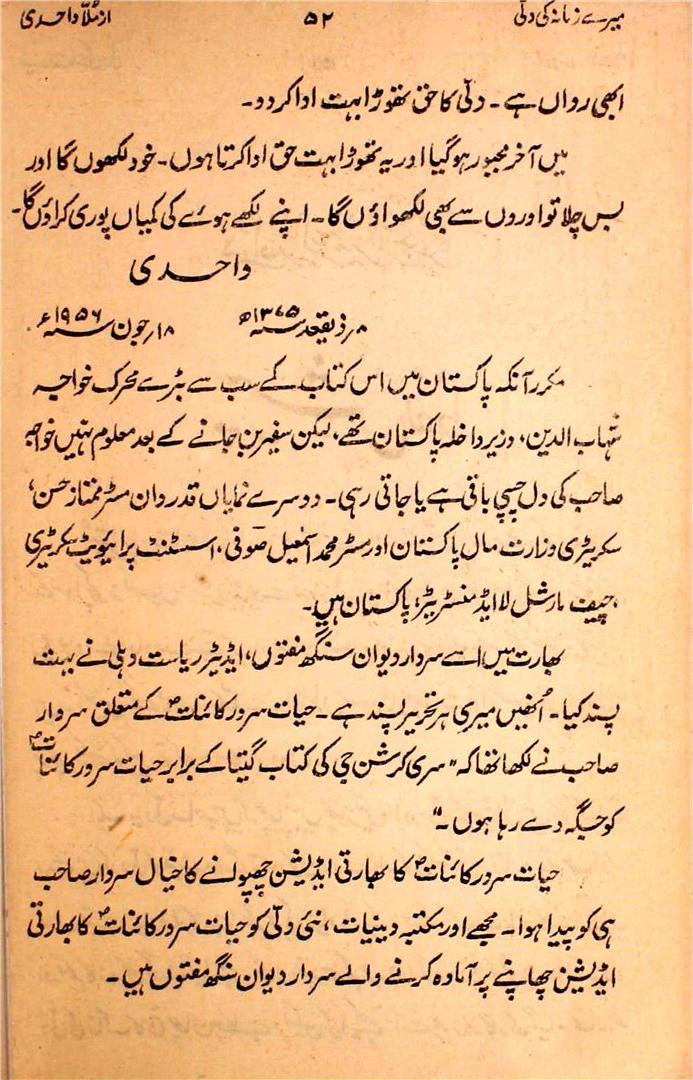 میرے زمانہ کی دلی ۵۲ از مُلّا واحدی
ابھی رواں ہے۔ دلّی کا حق تھوڑا بہت ادا کر دو۔
میں آخر مجبور ہو گیا اور یہ تھوڑا بہت حق ادا کرتا ہوں۔ خود لکھوں گا اور
بس چلا تو اوروں سے بھی لکھواؤں گا۔ اپنے لکھے ہوئے کی کمیاں پوری کراؤں گا۔
واحدی
۸ ذیقعد سنہ ۱۳۷۵ھ ۱۸ جون سنہ ۱۹۵۶ء
مکرر آنکہ پاکستان میں اس کتاب کے سب سے بڑے محرک خواجہ
شہاب الدین، وزیر داخلہ پاکستان تھے، لیکن سفیر بن جانے کے بعد معلوم نہیں خواجہ
صاحب کی دل چسپی باقی ہے یا جاتی رہی۔ دوسرے نمایاں قدردان مسٹر ممتاز حسن،
سکریٹری وزارت مال پاکستان اور مسٹر محمد اسمٰعیل صوفی، اسسٹنٹ پرائیویٹ سکریٹری
، چیف مارشل لا ایڈمنسٹریٹر، پاکستان ہیں۔
بھارت میں اسے سردار دیوان سنگھ مفتوں، ایڈیٹر ریاست دہلی نے بہت
پسند کیا۔ اُنھیں میری ہر تحریر پسند ہے۔ حیات سرور کائناتؐ کے متعلق سردار
صاحب نے لکھا تھا کہ "سری کرشن جی کی کتاب گیتا کے برابر حیات سرور کائناتؐ
کو جگہ دے رہا ہوں۔"
حیات سرور کائناتؐ کا بھارتی ایڈیشن چھپوانے کا خیال سردار صاحب
ہی کو پیدا ہوا۔ مجھے اور مکتبہ دینیات، نئی دلّی کو حیات سرور کائناتؐ کا بھارتی
ایڈیشن چھاپنے پر آمادہ کرنے والے سردار دیوان سنگھ مفتوں ہیں۔